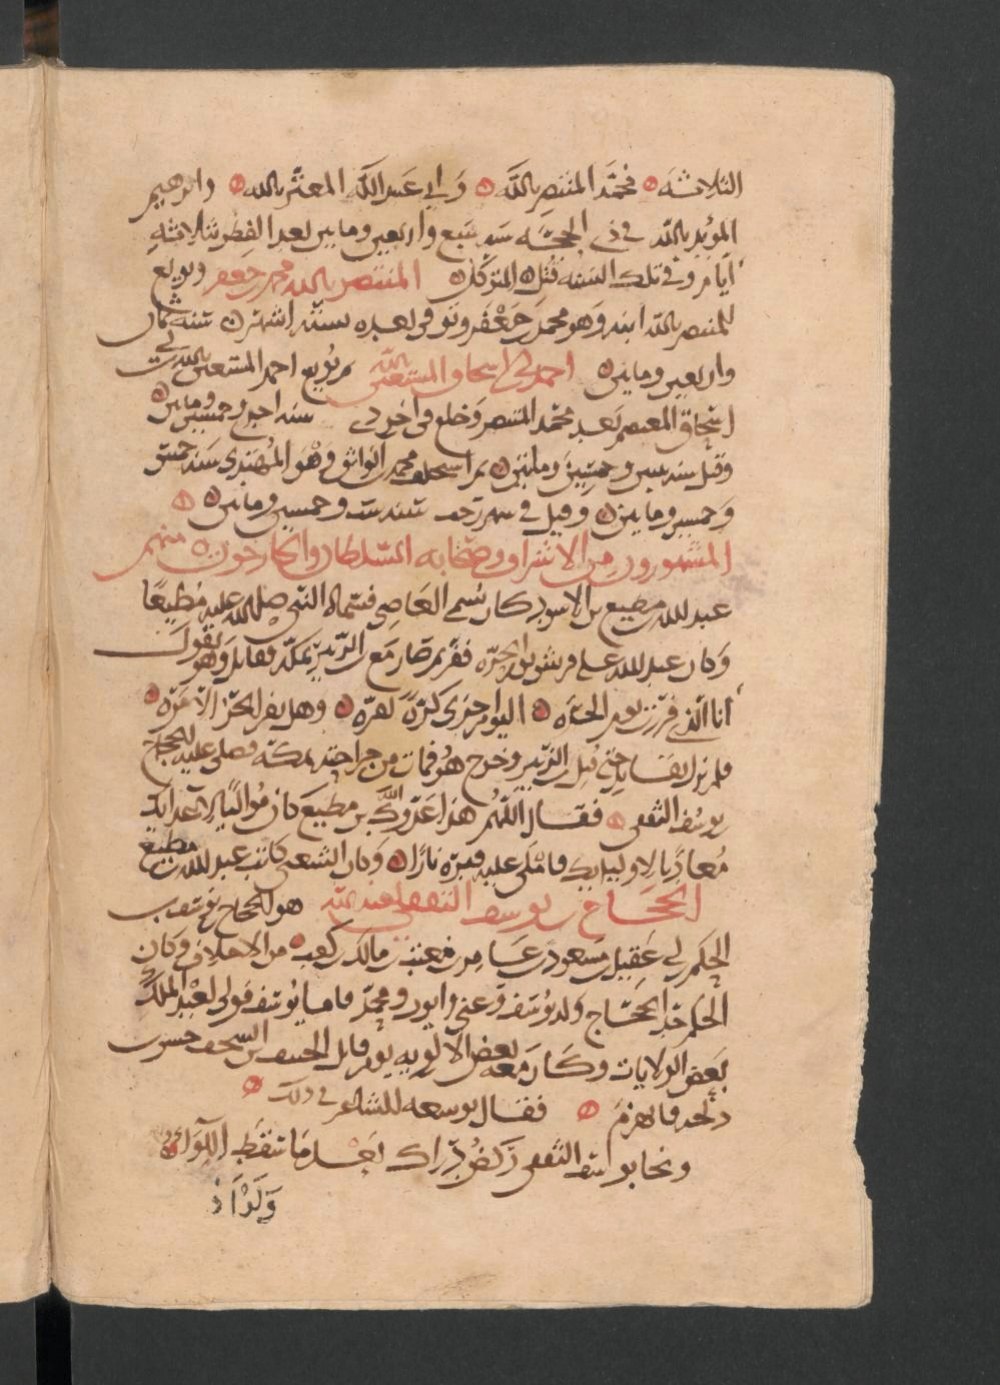 الثلاثة محمد المنتصر بالله وابي عبد الله المعتز بالله وابرهيم
المؤيد بالله في ذي الحجة سنة سبع واربعين ومايتين بعد الفطر بثلاثة
ايام وفي تلك السنة قتل المتوكل المنتصر بالله محمد جعفر وبويع
للمنتصر بالله ابنه وهو محمد جعفر وتوفي بعده بستة اشهر سنة ثمان
واربعين ومايتين احمد اسحاق المستعين بالله ثم بويع احمد المستعين بالله بن
اسحاق المعتصم بعد محمد المنتصر وخلع في اخر سنة احدى وخمسين ومايتين
وقتل سنة وخمسين ومايتين ثم استخلف محمد الواثق وهو المهتدي سنة خمس
وخمسين ومايتين وقتل في رجب سنة ست وخمسين ومايتين
المشهورون من الاشراف وصحابة السلطان والخارجون منهم
عبد الله مطيع بن الاسود كان يسمى العاصي فسماه النبي صلى الله عليه مطيعا
وكان عبد الله على قريش يوم الحرة ففر ثم صار مع الزبير بمكة فقاتل وهو يقول
انا الذي فررت يوم الحره اليوم اجزي كرة بفره وهل يفر الحر الا مره
فلم يزل يقاتل حتى قتل الزبير وخرج هو فمات من جراحته بمكة وصلى عليه الحجاج
يوسف الثقفي فقال اللهم هذا عدوك بن مطيع كان مواليا لاعدايك
معاديا لاوليايك فاملى عليه قبره نارا وكان الشعبي كاتب عبد الله مطيع
الحجاج بن يوسف الثقفي لعنه الله هو الحجاج يوسف
الحكم ابي عقيل مسعود عامر معتب مالك كعب من الاحلاف وكان
الحكم جد الحجاج ولد يوسف وايوب ومحمد فاما يوسف فولي لعبد الملك
بعض الولايات وكان معه بعض الالوية يوم قاتل الحنتف بن السجف حبيش
دلجه فانهزم فقال يوسف للشاعر في ذلك
ونجا يوسف الثقفي ركض دراك بعد ما سقط اللواء
ولو ا